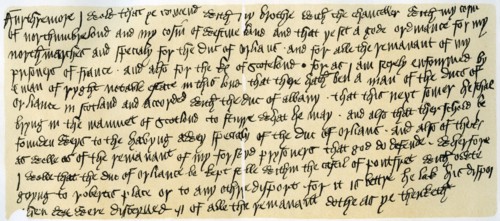 Furthremore I wold that ye comend with my brothre with the chanceller with my cosin
of northumbrelond and my cosin of westmerland and that ye set a gode ordinance for my
northmarches and specialy for the duc of orlians and for alle the remanant of my
prisoners of france and also for the k of scoteland for as I am secrely enfourmed by
a man of ryght notable estate in this lond that there hath ben a man of the ducs of
orliance in scotland and accorded with the duc of albany that this next somer he schal
bryng in the mamuet of scotland to sturre what he may and also that ther schold be
founden weys to the havyng awey specialy of the duc of orlians and also of the k
as welle as of the remanant of my forsayd prisoners that god do defende wherfore
I wolle that the duc of orliance be kept stille withyn the castil of pontfret with owte
goyng to robertis place or to any othre disport for it is bettre he lak his disport
then we were disceyved of alle the remanant dothe as ye thenketh